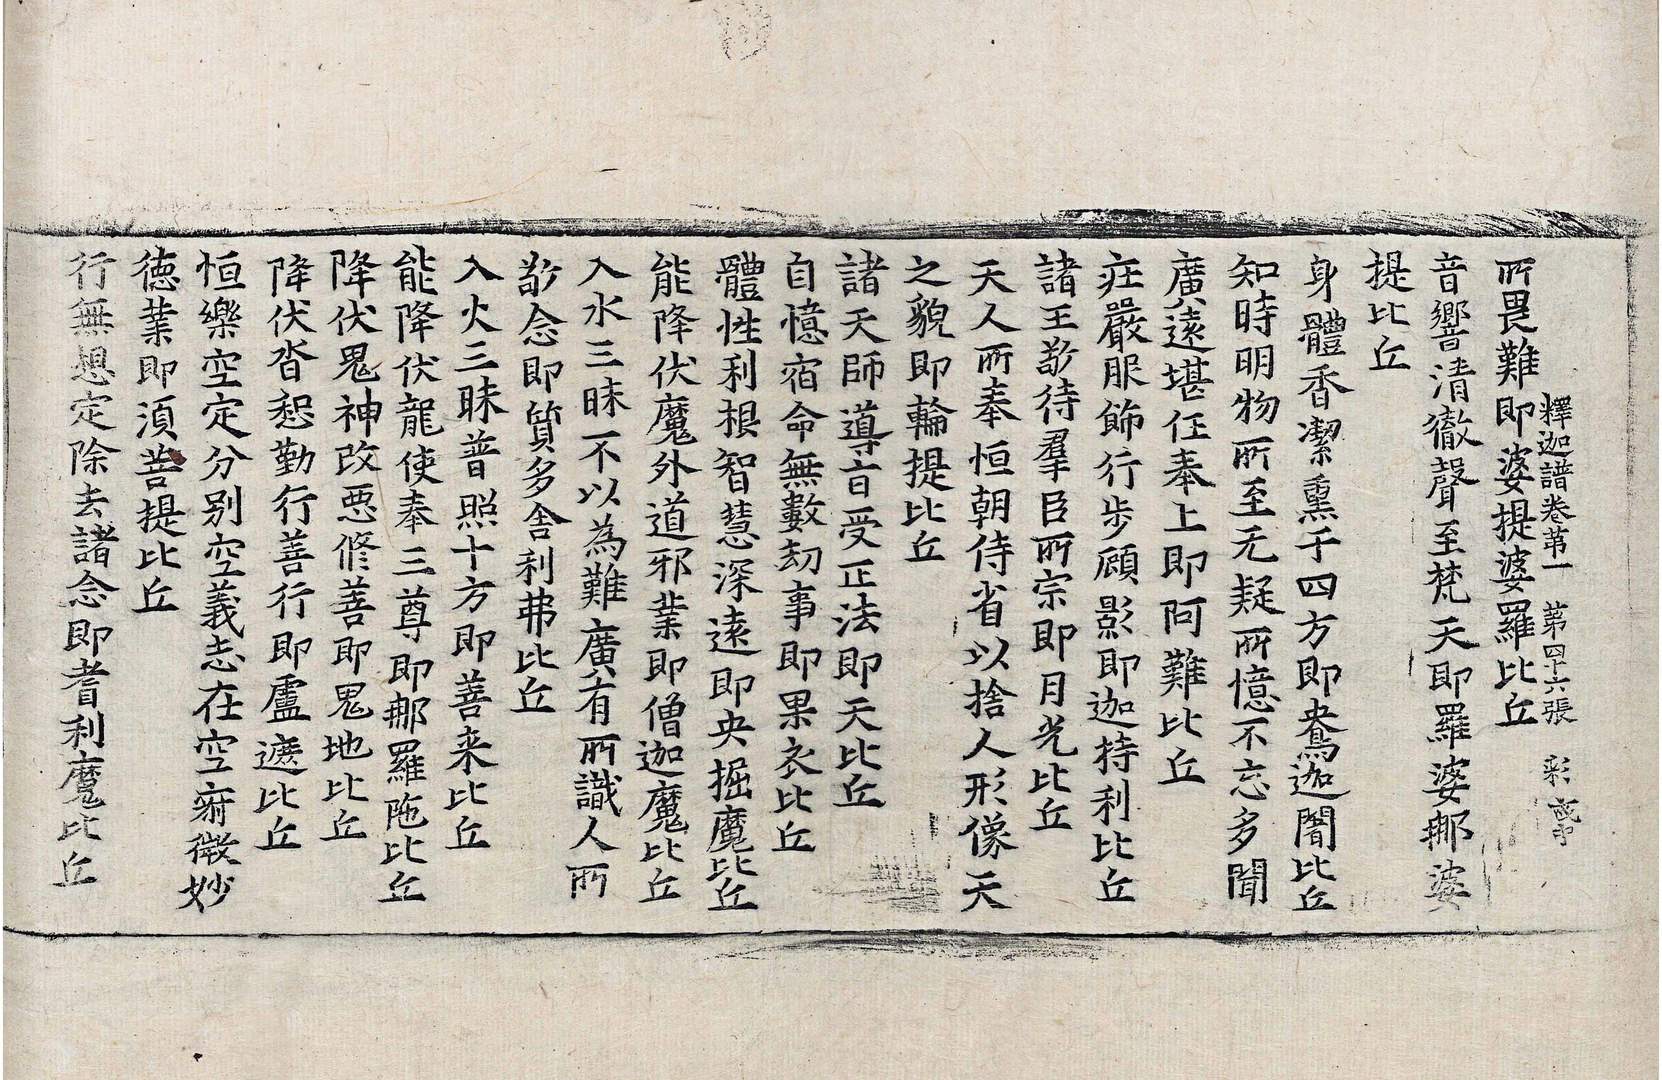 釋迦譜卷第一　第四十六張　彩
所畏難即婆提婆羅比丘
音響清徹聲至梵天即羅婆那婆
提比丘
身體香潔熏于四方即鴦迦闍比丘
知時明物所至无疑所憶不忘多聞
廣遠堪任奉上即阿難比丘
疘嚴服飾行步顧影即迦持利比丘
諸王敬待羣臣所宗即月光比丘
天人所奉恒朝侍省以捨人形像天
之貌即輪提比丘
諸天師導旨受正法即天比丘
自憶宿命無數劫事即果衣比丘
體性利根智慧深遠即央掘魔比丘
能降伏魔外道邪業即僧迦魔比丘
入水三昧不以為難廣有所識人所
敬念即質多舍利弗比丘
入火三昧普照十方即善来比丘
能降伏龍使奉三尊即那羅陁比丘
降伏鬼神改惡修善即鬼地比丘
降伏沓惒勤行善行即盧遮比丘
恒樂空定分別空義志在空寂微妙
德業即須菩提比丘
行無想定除去諸念即耆利魔比丘